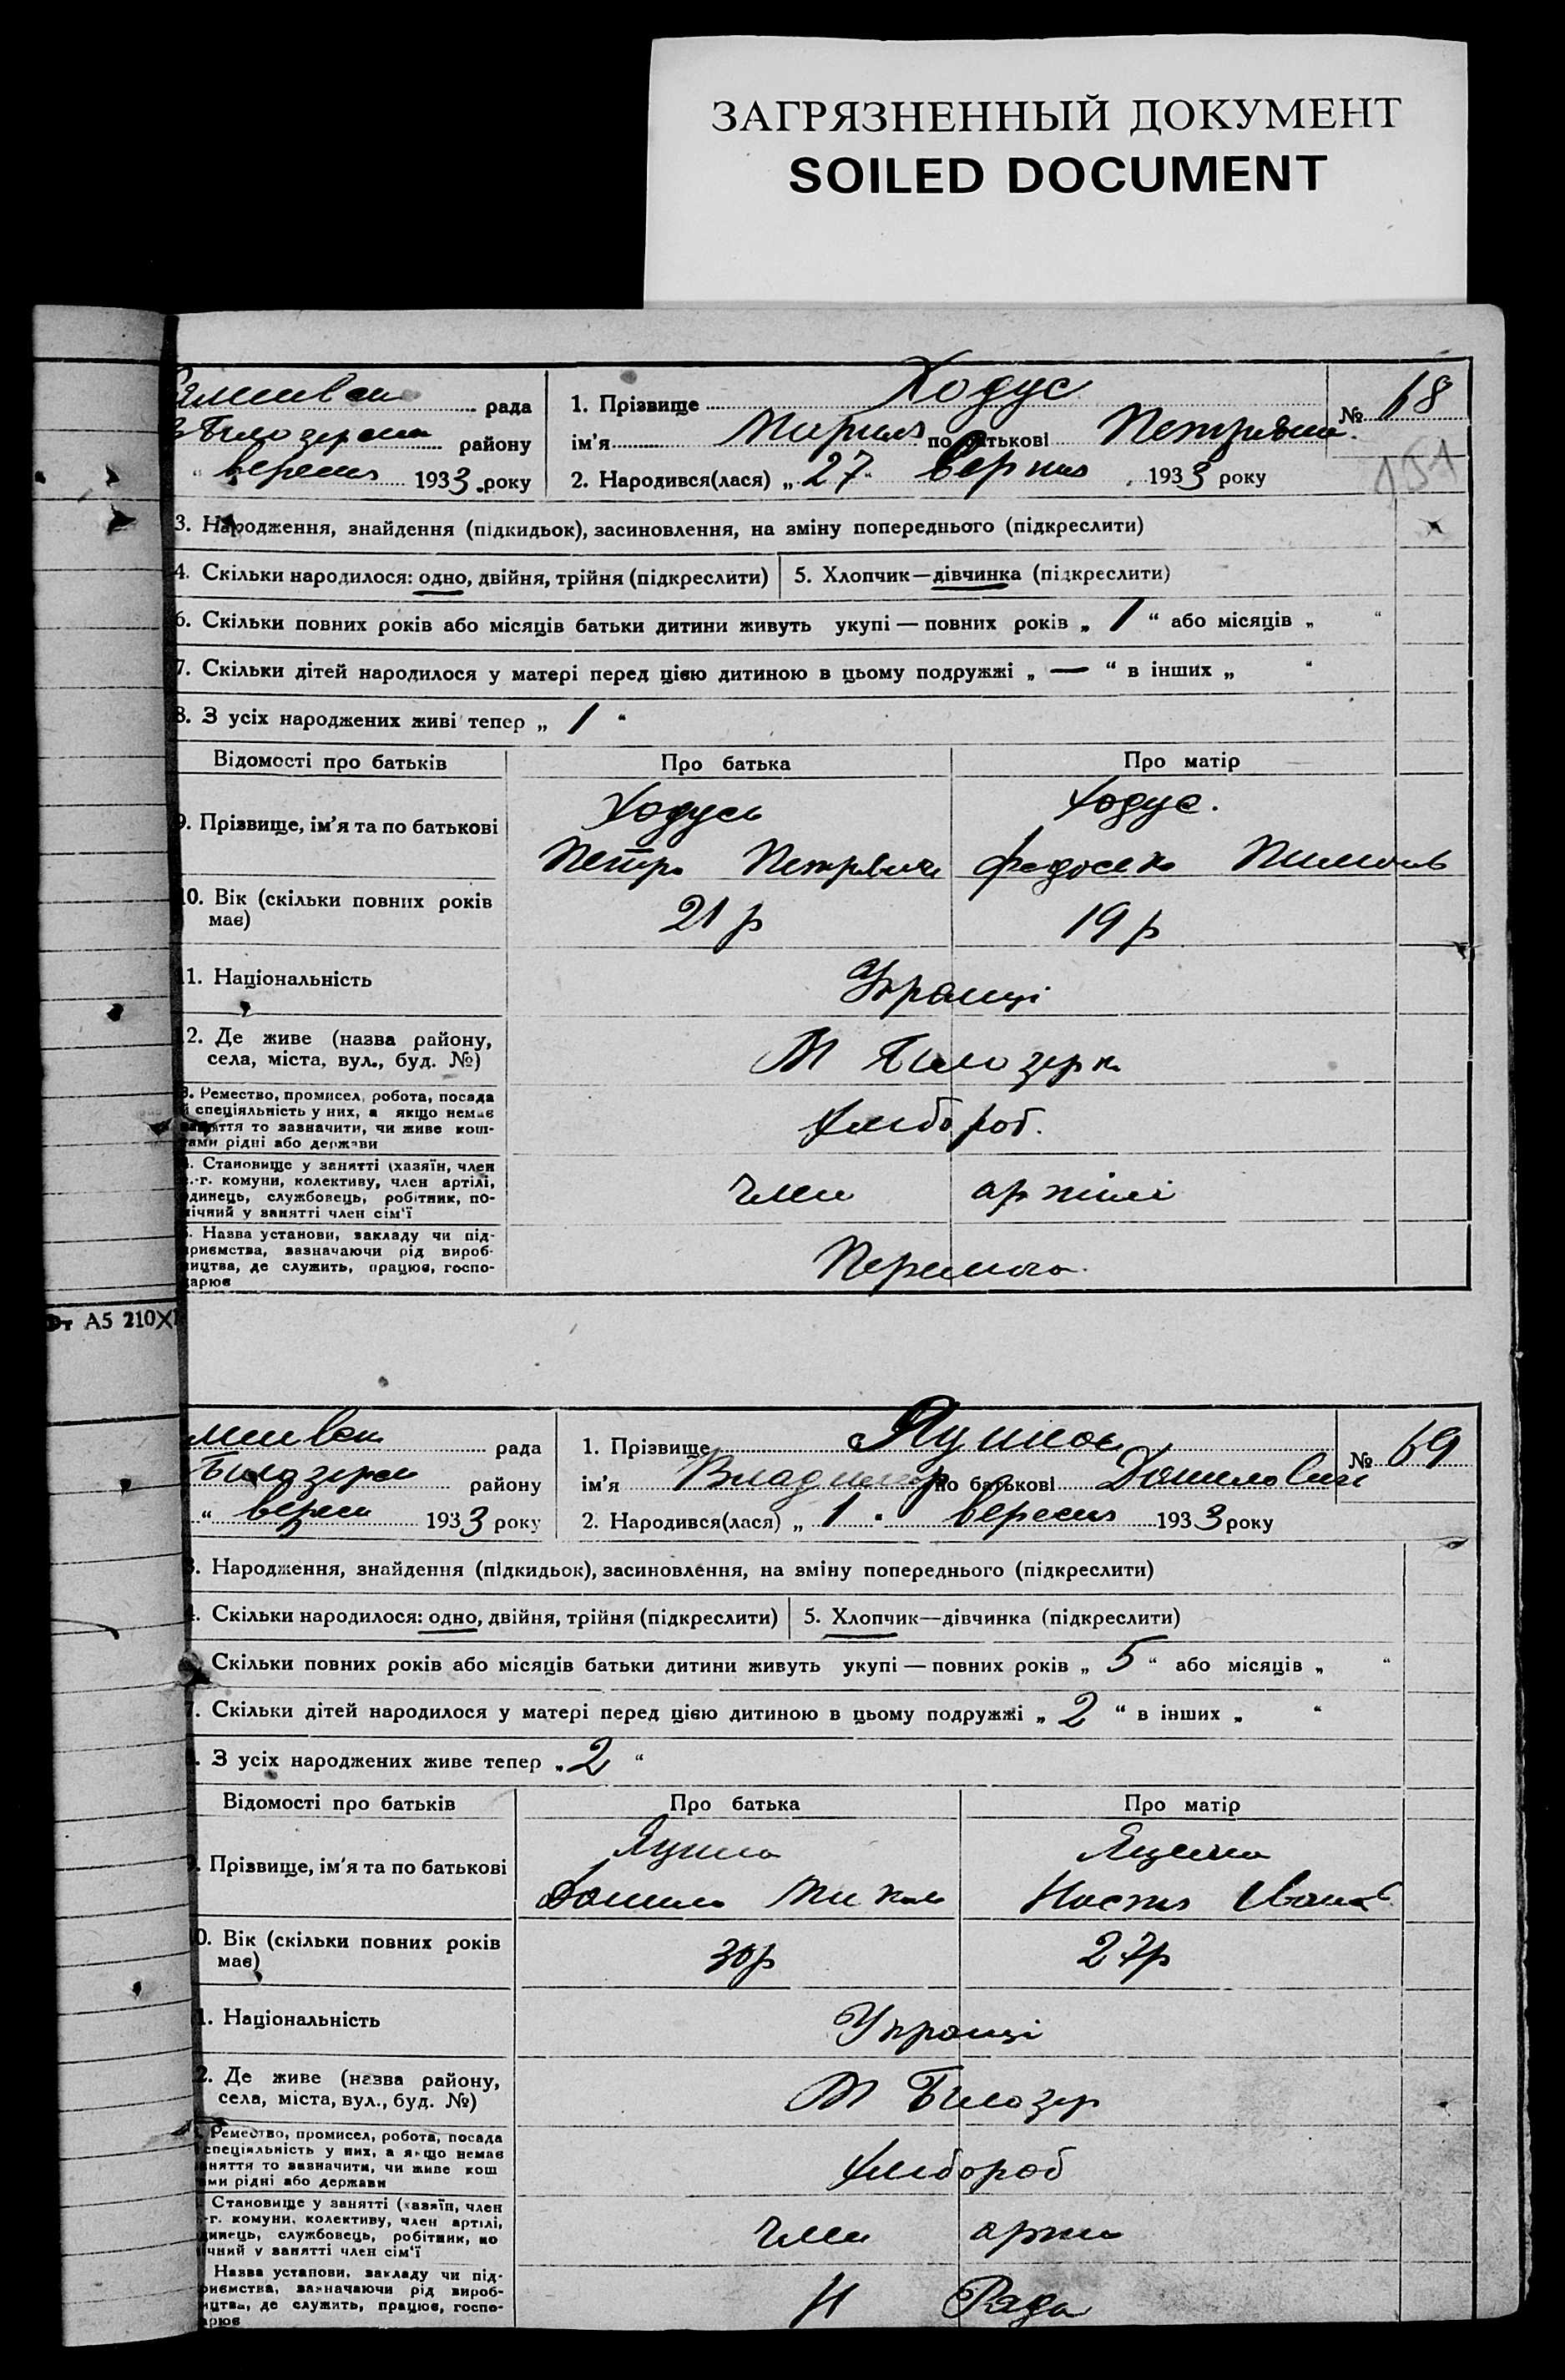 ЗАГРЯЗНЕННЫЙ ДОКУМЕНТ
SOILED DOCUMENT
рада
району
вересня 1933 року
1. Прізвище Ходус
№ 68
ім'я Мария по батькові Петрівна
2. Народився(лася) „ 27 “ верния 1933 року
151
3. Народження, знайдення (підкидьок), засиновлення, на зміну попереднього (підкреслити)
4. Скільки народилося: одно, двійня, трійня (підкреслити)
5. Хлопчик—дівчинка (підкреслити)
6. Скільки повних років або місяців батьки дитини живуть укупі — повних років „ 1 “ або місяців „ “
7. Скільки дітей народилося у матері перед цією дитиною в цьому подружжі „ — “ в інших „ “
8. З усіх народжених живі тепер „ 1 “
Відомості про батьків Про батька Про матір
9. Прізвище, ім'я та по батькові
Ходусь Ходус.
Петро Петрович Федосея
10. Вік (скільки повних років має)
21 р 19 р
11. Національність
Українці
12. Де живе (назва району, села, міста, вул., буд. №)
М Білозерк
Ремество, промисел, робота, посада
й спеціяльність у них, а якщо немає
няття то зазначити, чи живе кош-
тами рідні або держави
Хлібороб.
Становище у занятті (хазяїн, член
с.-г. комуни, колективу, член артілі,
динець, службовець, робітник, по-
мічний у занятті член сім'ї
член артілі
Назва установи, закладу чи під-
приємства, зазначаючи рід вироб-
ництва, де служить, працює, госпо-
дарює
Перемога.
от А5 210Х
рада
району
“ верес 1933 року
1. Прізвище
№ 69
ім'я Владимир по батькові Данилович
2. Народився(лася) „ 1 “ вересня 1933 року
3. Народження, знайдення (підкидьок), засиновлення, на зміну попереднього (підкреслити)
4. Скільки народилося: одно, двійня, трійня (підкреслити)
5. Хлопчик—дівчинка (підкреслити)
Скільки повних років або місяців батьки дитини живуть укупі — повних років „ 5 “ або місяців „ “
7. Скільки дітей народилося у матері перед цією дитиною в цьому подружжі „ 2 “ в інших „ “
З усіх народжених живе тепер „ 2 “
Відомості про батьків Про батька Про матір
Прізвище, ім'я та по батькові
Данило Микол Настя Іванов
0. Вік (скільки повних років має)
30р 27р
1. Національність
Українці
2. Де живе (назва району, села, міста, вул., буд. №)
М Білозер
Ремество, промисел, робота, посада
спеціяльність у них, а якщо немає
няття то зазначити, чи живе кош
ами рідні або держави
Хлібороб
Становище у занятті (хазяїн, член
-г. комуни, колективу, член артілі,
динець, службовець, робітник, по
чний у занятті член сім'ї
член арти
Назва установи, закладу чи під-
риємства, зазначаючи рід вироб-
ицтва, де служить, працює, госпо-
арює
Н Рада